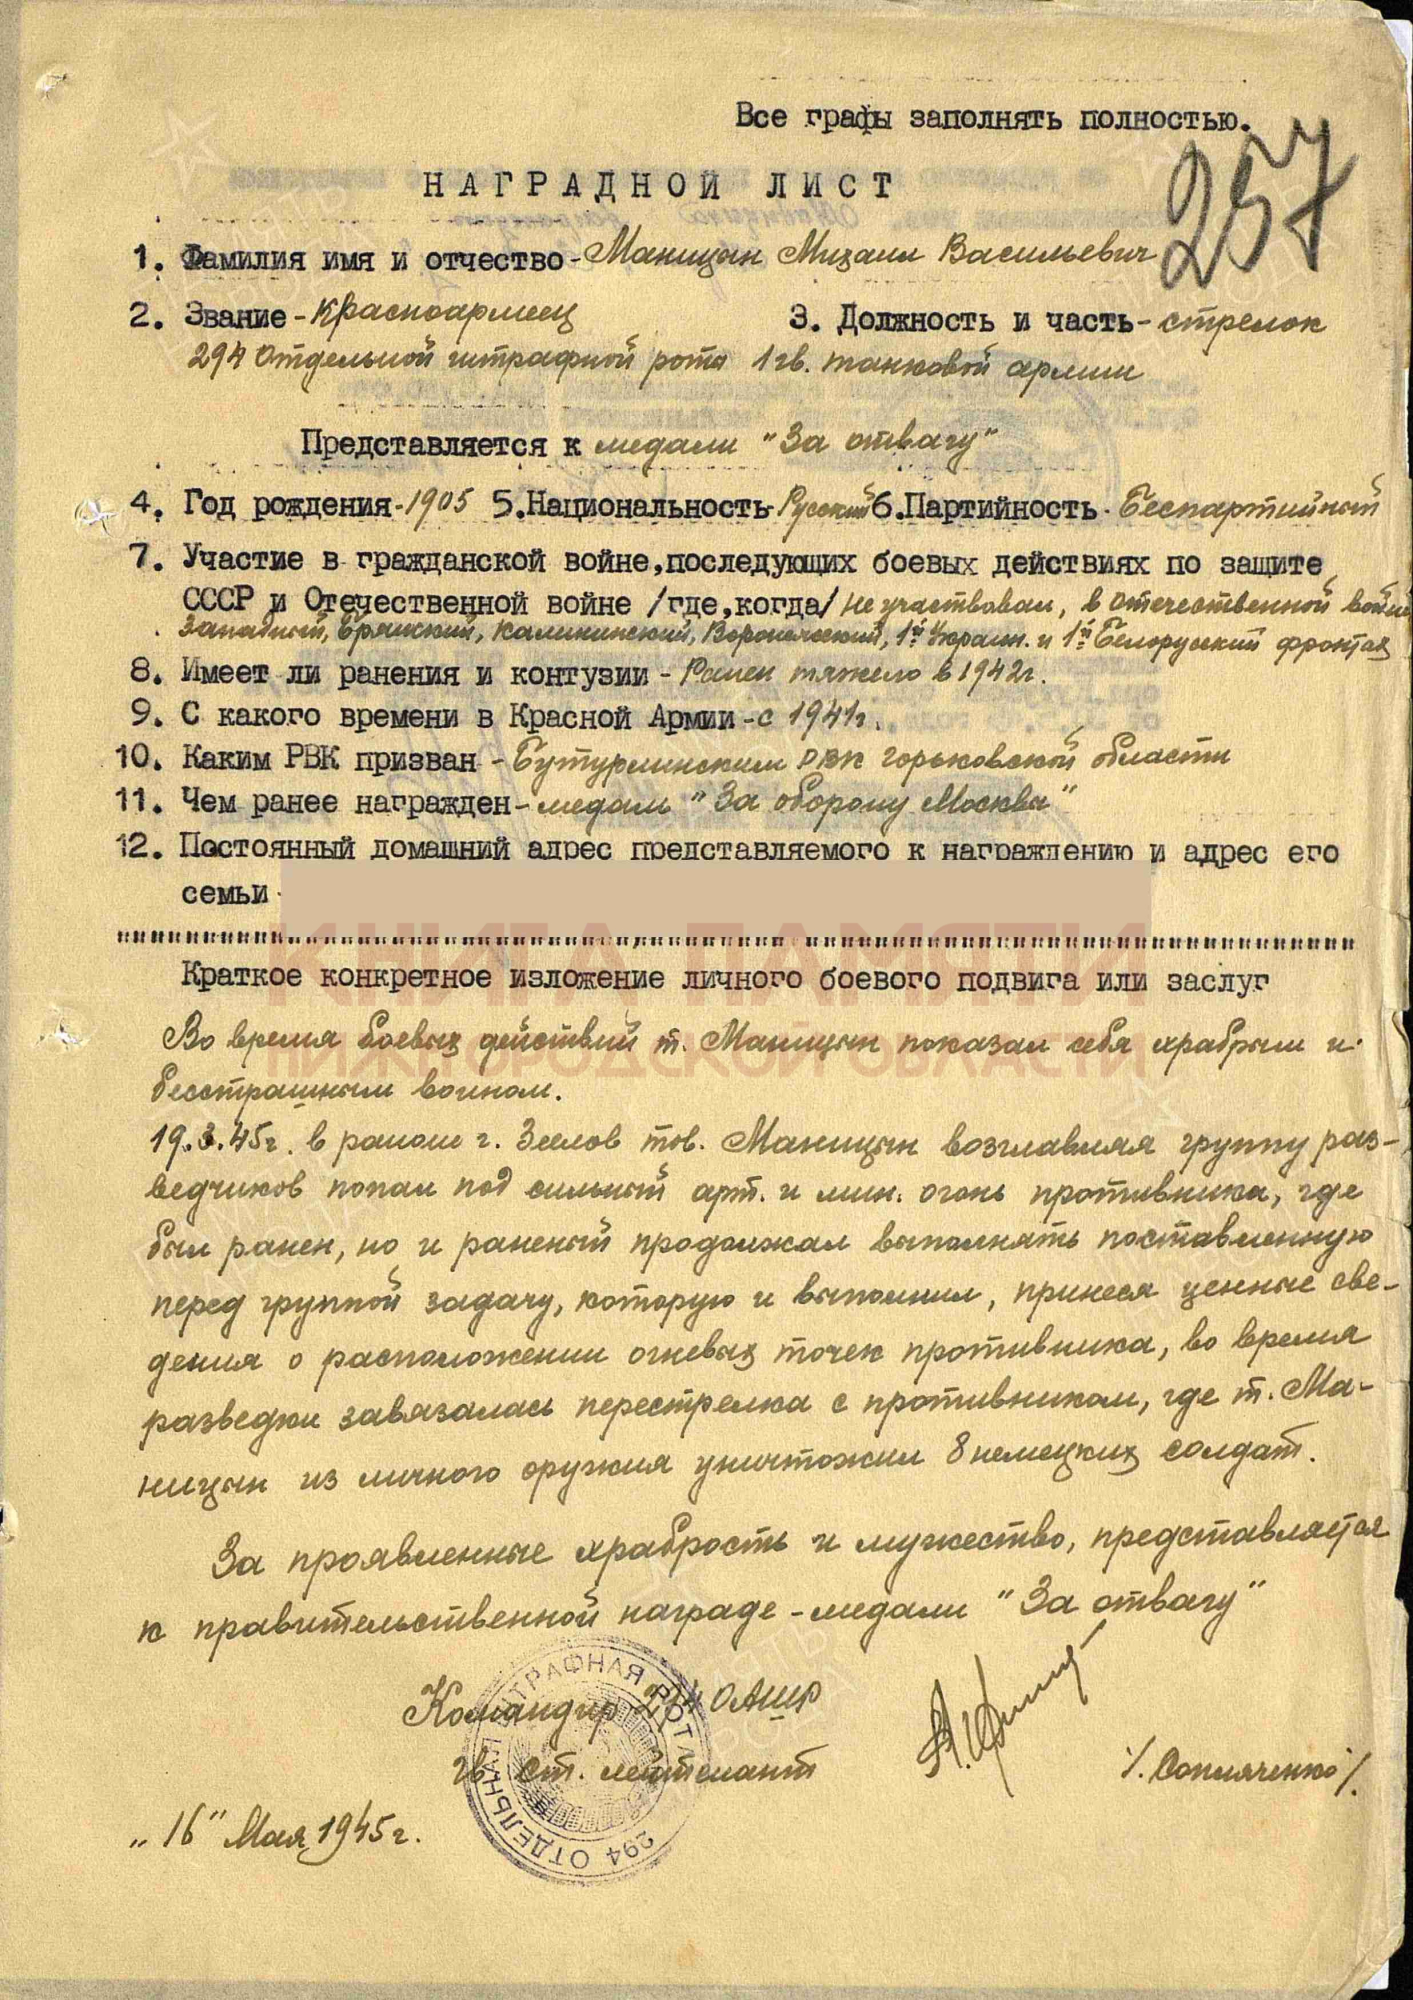 Все графы заполнять полностью.
257
НАГРАДНОЙ ЛИСТ
1. Фамилия имя и отчество - Маницын Михаил Васильевич
2. Звание - Красноармеец 3. Должность и часть - стрелок
294 отдельной штрафной рота 1 гв. танковой армии
Представляется к медали "За отвагу"
4. Год рождения - 1905 5. Национальность - Русский 6. Партийность - Беспартийный
7. Участие в гражданской войне, последующих боевых действиях по защите
СССР и Отечественной войне /где, когда/ не участвовал, в отечественной войне
Западный, Брянский, Калининский, Воронежский, 1й Украин. и 1й Белорусский фронтах
8. Имеет ли ранения и контузии - Ранен тяжело в 1942г.
9. С какого времени в Красной Армии - с 1941г.
10. Каким РВК призван - Бутурлинским РВК Горьковской области
11. Чем ранее награжден - медаль "За оборону Москвы"
12. Постоянный домашний адрес представляемого к награждению и адрес его
семьи -
КНИГА ПАМЯТИ
Краткое конкретное изложение личного боевого подвига или заслуг
НИЖЕГОРОДСКОЙ ОБЛАСТИ
Во время боевых действий т. Маницын показал себя храбрым и
бесстрашным воином.
19.3.45г. в районе г. Зеелов тов. Маницын возглавляя группу раз-
ведчиков попал под сильный арт. и мин. огонь противника, где
был ранен, но и раненый продолжал выполнять поставленную
перед группой задачу, которую и выполнил, принеся ценные све-
дения о расположении огневых точек противника, во время
разведки завязалась перестрелка с противником, где т. Ма-
ницын из личного оружия уничтожил 8 немецких солдат.
За проявленные храбрость и мужество, представляется
к правительственной награде - медали "За отвагу"
Командир 294 ОАШР
гв ст. лейтенант /. Сопляченко /.
294 ОТДЕЛЬНАЯ ШТРАФНАЯ РОТА
"16" Мая 1945г.